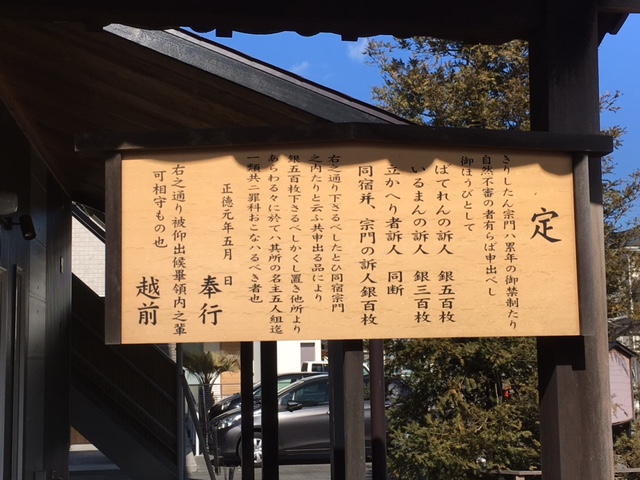 定
きりしたん宗門ハ累年の御禁制たり
自然不審の者有らば申出べし
御ほうびとして
ばてれんの訴人　銀五百枚
いるまんの訴人　銀三百枚
立かへり者訴人　同断
同宿并、宗門の訴人銀百枚
右之通り下さるべしたとひ同宿宗門
之内たりと云ふ共申出る品により
銀五百枚下さるべしかくし置き他所より
あらわるゝに於てハ其所の名主五人組迄
一類共ニ罪科おこなハるべき者也
正徳元年五月　日
奉行
右之通り被仰出候畢領内之輩
可相守もの也
越前